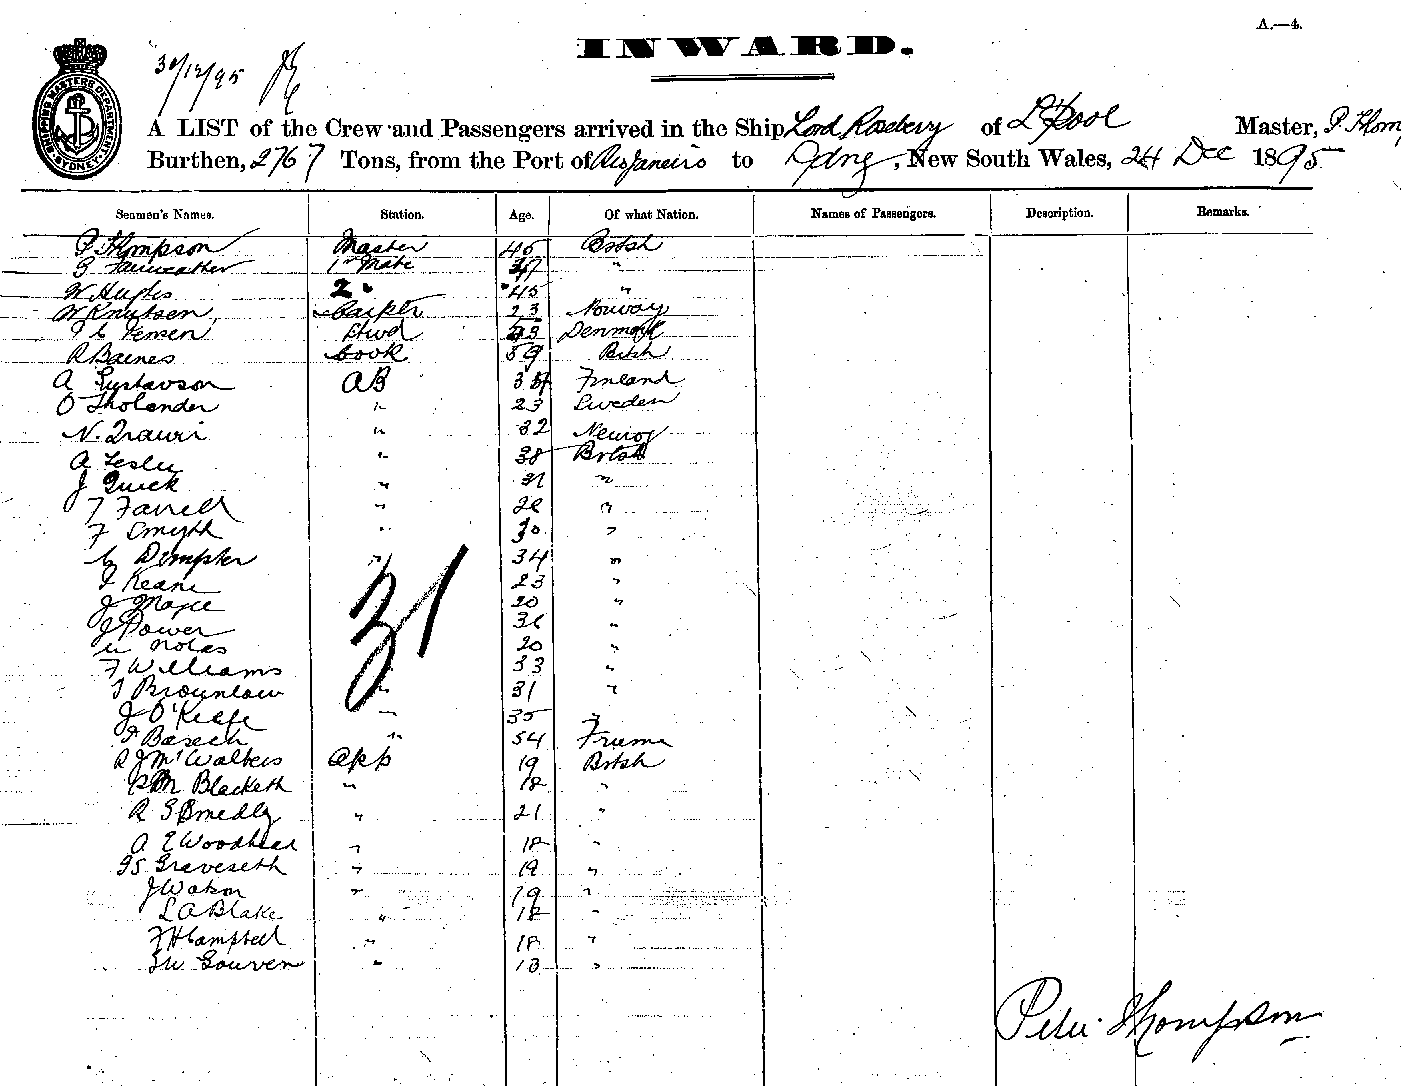 A.—4.
INWARD.
30/12/95
SHIPPING MASTERS DEPARTMENT SYDNEY
A LIST of the Crew and Passengers arrived in the Ship Lord Rosebery of L'Pool Master, P. Thom
Burthen, 2767 Tons, from the Port of Rio Janeiro to Sydney, New South Wales, 24 Dec 1895
Seamen's Names. Station. Age. Of what Nation. Names of Passengers. Description. Remarks.
P. Thompson Master 45 Britsh
Fairweather 1st Mate "
W Hughes 2 " 45 "
W Knutsen Carptr 23 Norway
Jensen Stwd Denmark
R Baines Cook 59 Britsh
A Gustavson AB Finland
O Tholander " 23 Sweden
N. " 32
A Leslie " 38 Britsh
J Quick " "
T Farrell " "
F Smyth " 30 "
C Dempster " 34 "
Keane 23 "
J Magee 20 "
J Power "
20 "
F Williams 33 "
T Brownlow " 31 "
J O'Keefe " 35 "
" 54
R J McWalters app 19 Britsh
Blacketh " 18 "
R S Smedly " 21 "
A E Woodhead " 18 "
" 19 "
J Watson " 19 "
L A Blake " 18 "
F H Campbell " 18 "
" 18 "
31
Peter Thompson